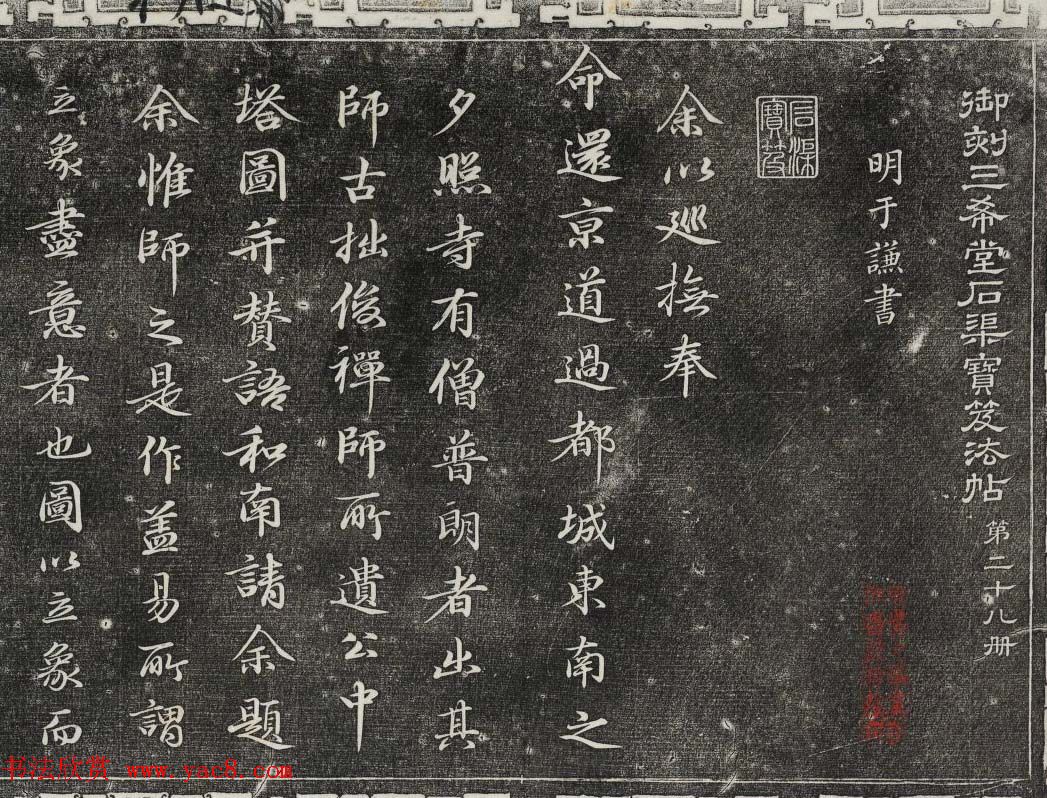 御刻三希堂石渠寶笈法帖 第二十八册
明于謙書
石渠寶笈
余以廵撫奉
命還京道過都城東南之
夕照寺有僧普朗者出其
師古拙俊禪師所遺公中
塔圖并贊語和南請余題
余惟師之是作盖易所謂
立象盡意者也圖以立象而
书法欣赏 www.yac8.com